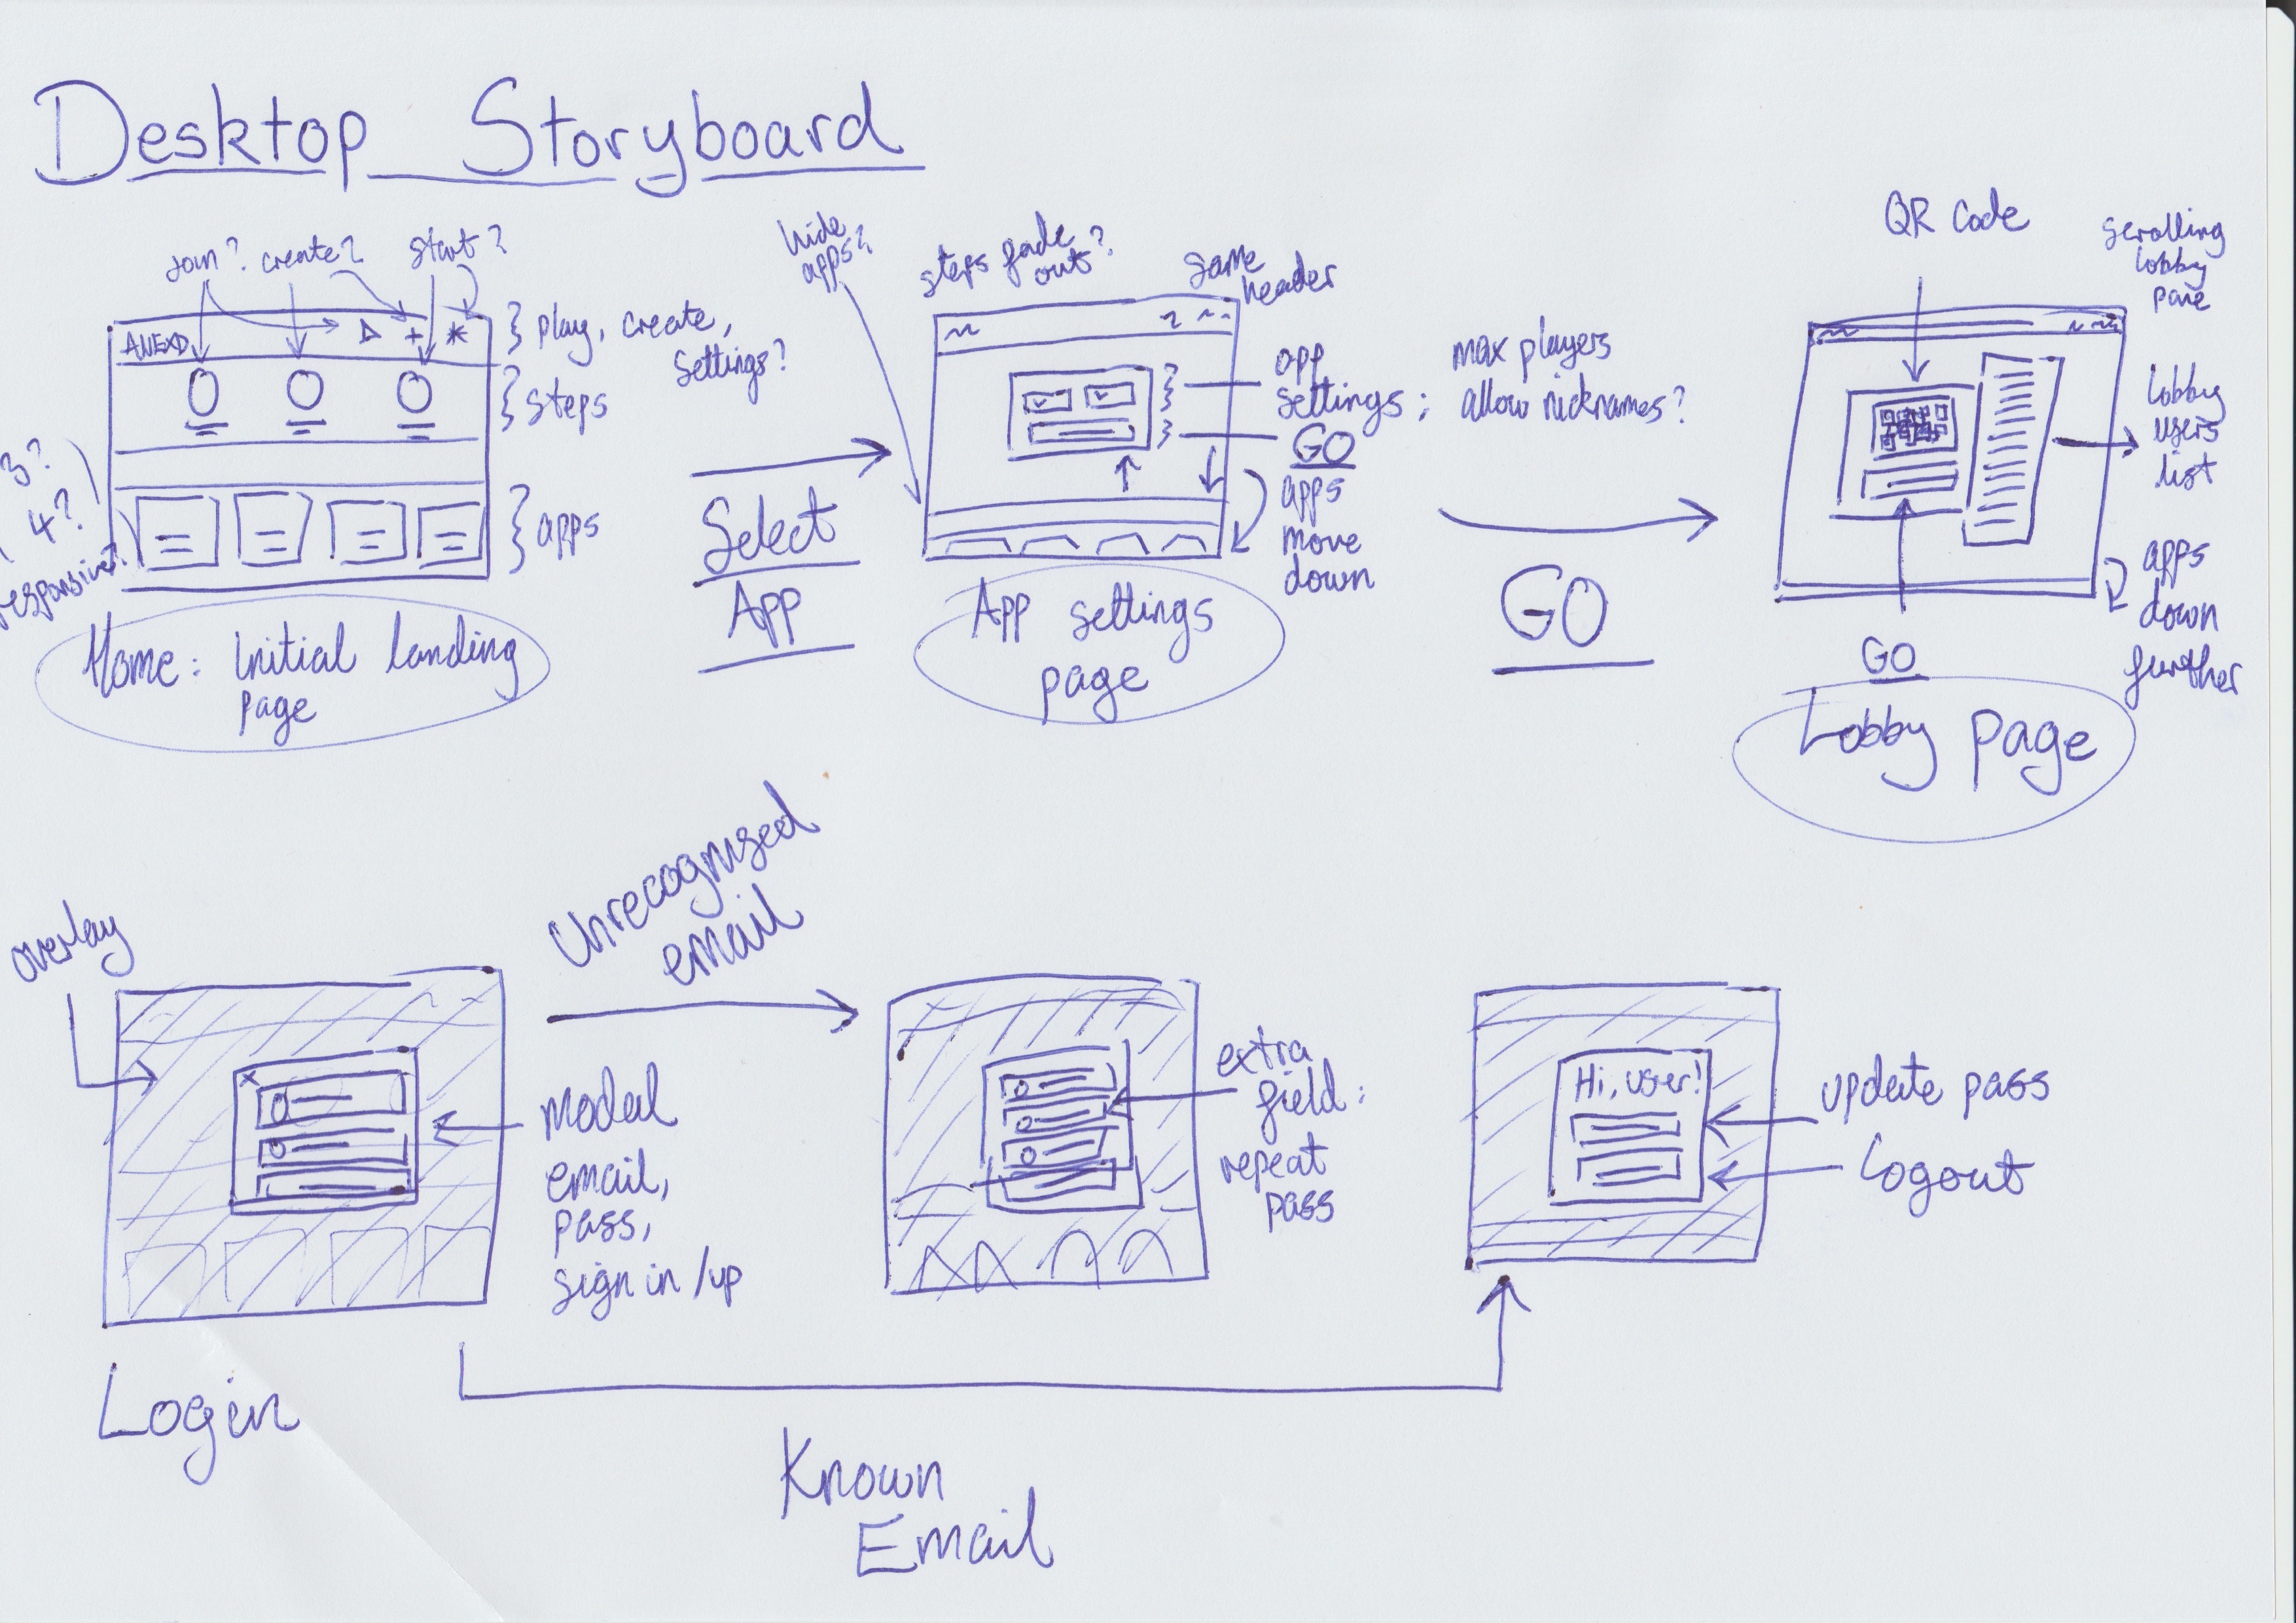 Desktop Storyboard
Join? create? start?
ANEXD
play, create,
settings?
steps
apps
3?
4?
responsive?
Home: Initial landing
page
Select
App
hide
apps?
steps fade
out?
same
header
app
settings;
max players
allow nicknames?
GO
apps
move
down
App settings
page
GO
QR Code
scrolling
lobby
pane
lobby
users
list
apps
down
further
GO
Lobby page
overlay
Login
Unrecognised
email
Modal
email,
pass,
sign in /up
extra
field:
repeat
pass
Hi, user!
update pass
Logout
Known
Email